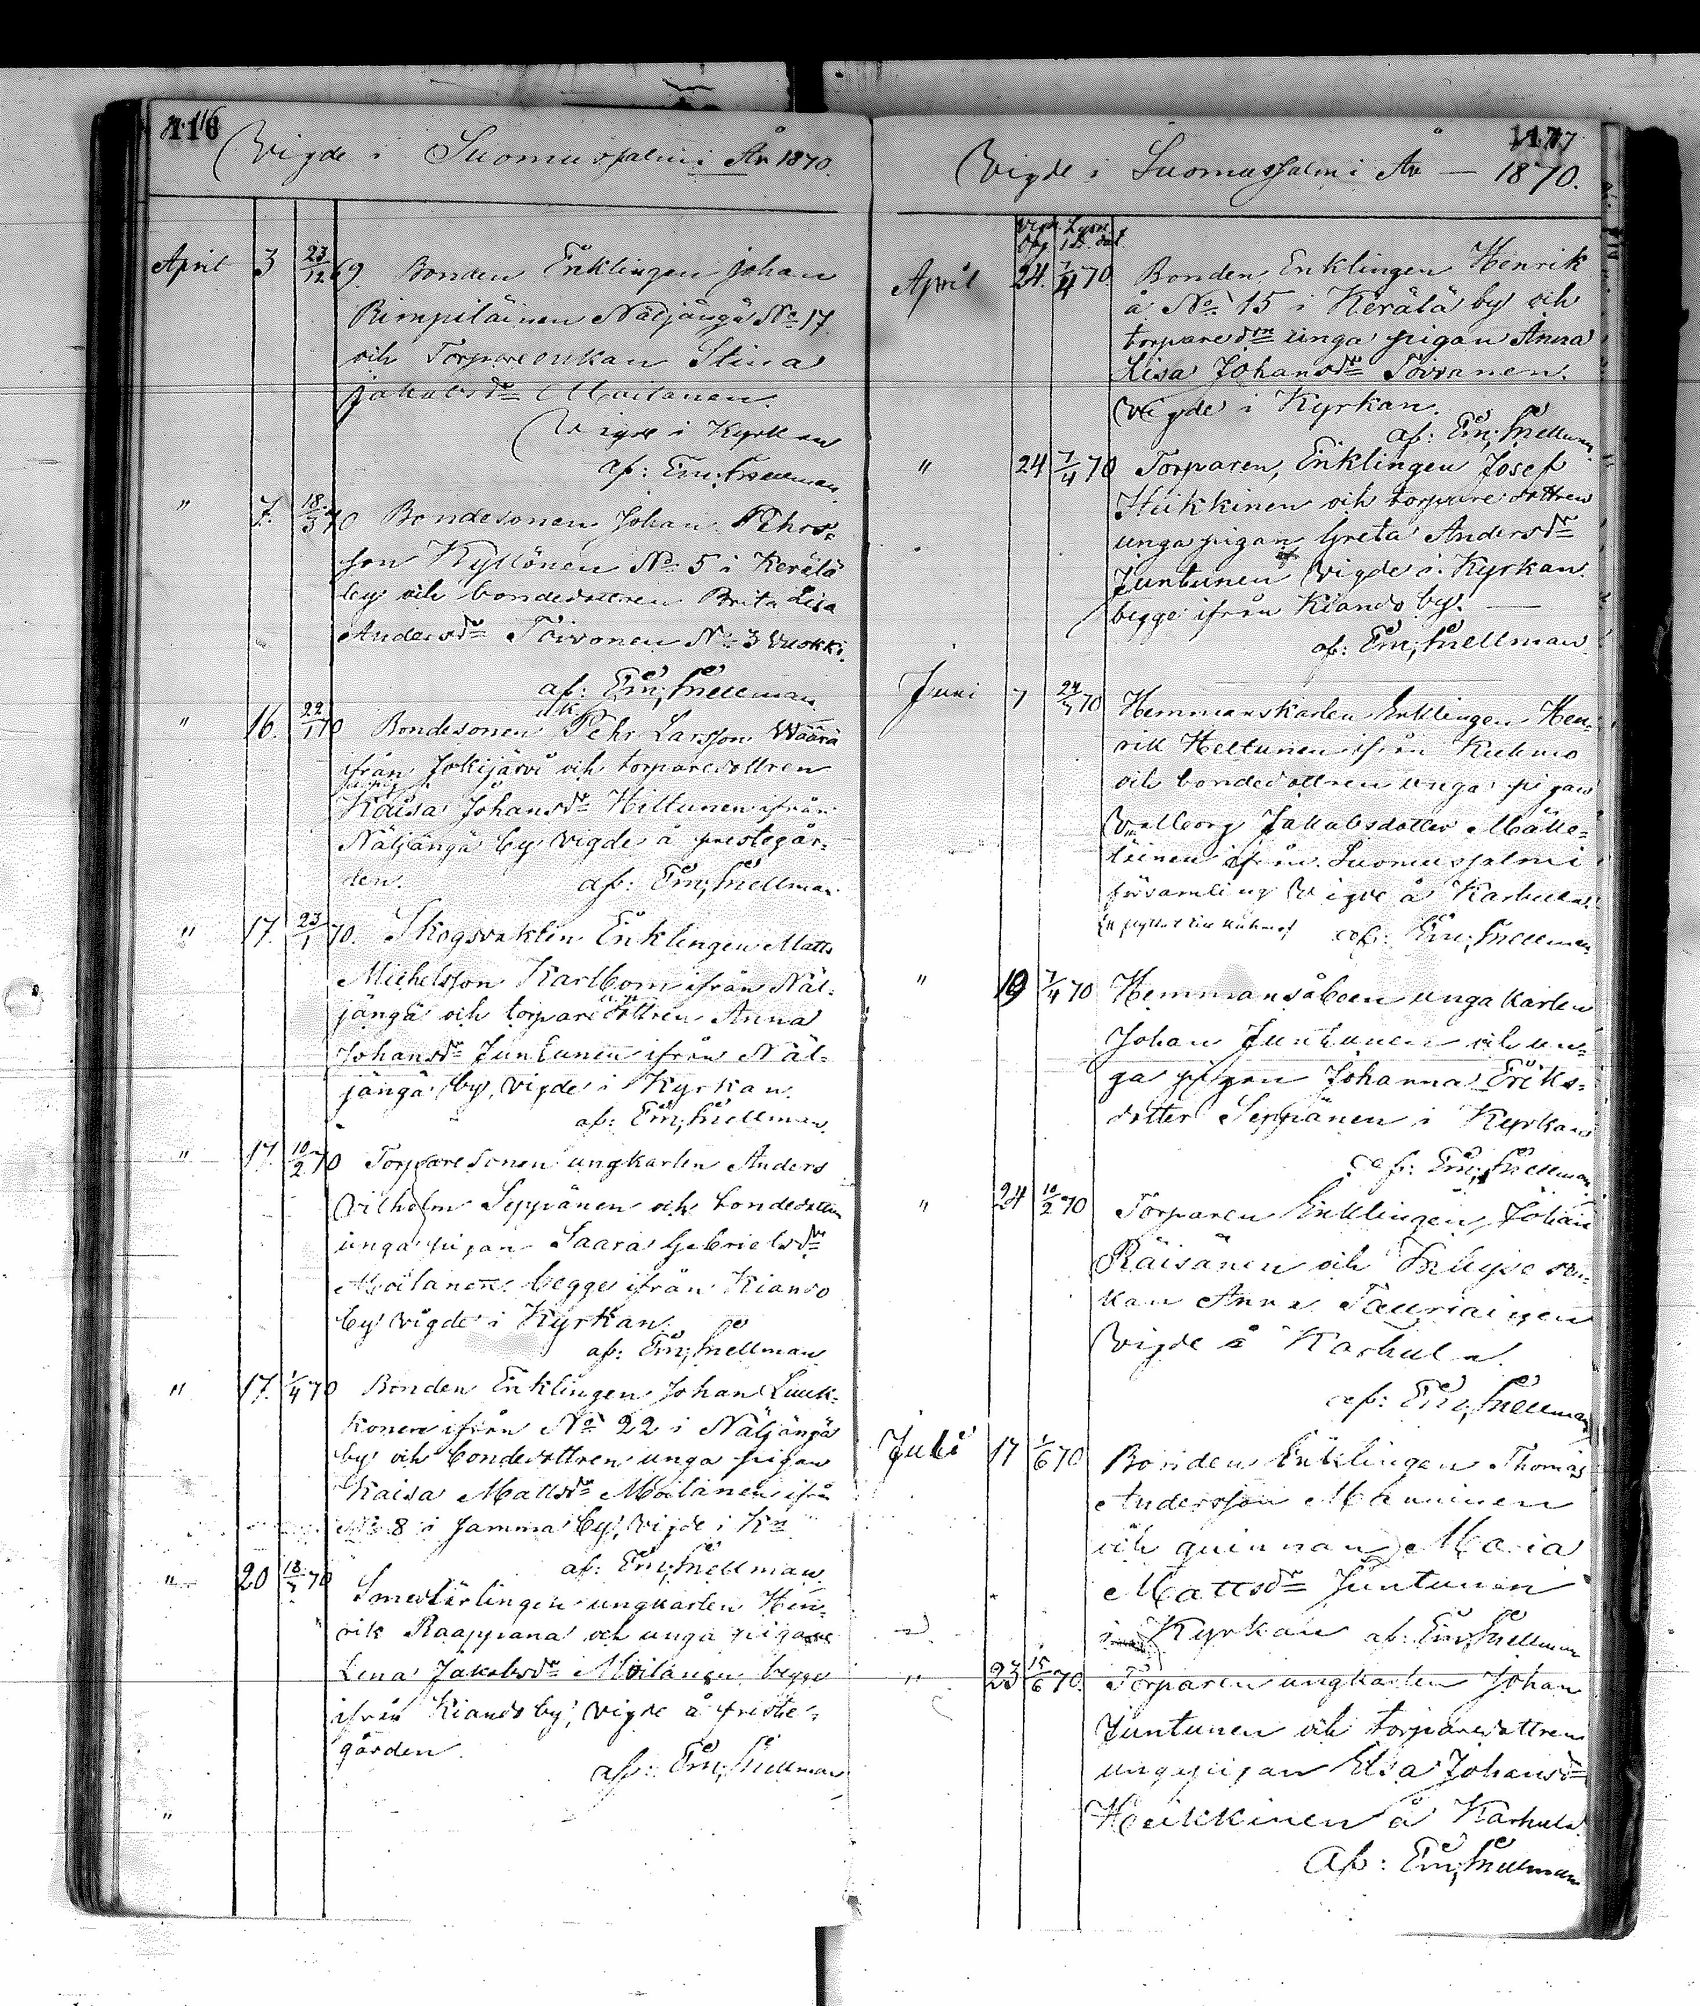 116
Vigde i Suomussalmi År 1870.
April 3 23/12 69. Bonden Enklingen Johan
Rimpiläinen Näljängä No 17
och Torpare enkan Stina
Jakobsdr Moilanen.
Vigde i Kyrkan
af: Em; Snellman.
" 7. 18/3 70 Bondesonen Johan Pehrs-
son Kyllönen No 5 i Kerälä
by och bondedottren Brita Lisa
Andersdr Toivonen No 3 Vuokki.
af: Em; Snellman
" 16. 22/1 70 Bondesonen Pehr Larsson Waara
från Jokijärvi och torparedottren
Kaisa Johansdr Hiltunen ifrån
Näljängä by vigde å prestegår-
den. af: Em; Snellman.
" 17. 23/1 70. Skogsvakten Enklingen Matts
Michelsson Karlbom ifrån Näl-
jängä och torparedottren Anna
Johansdr Juntunen ifrån Näl-
jängä by, vigde i Kyrkan.
af: Em; Snellman.
" 17. 10/2 70 Torparesonen ungkarlen Anders
Vilhelm Seppänen och bondedottren
unga pigan Saara Gabrielsdr
Moilanen begge ifrån Kiando
by vigde i Kyrkan.
af: Em; Snellman
" 17. 1/4 70 Bonden Enklingen Johan Luuk-
konen ifrån No 22 i Näljängä
by och bondedottren unga pigan
Kaisa Mattsdr Moilanen ifrån
No 8 i Jamma by, vigde i Kn
af: Em; Snellman.
" 20 18/3 70 Smedlärlingen ungkarlen Hen-
rik Raappana och unga pigan
Lena Jakobsdr Moilanen begge
ifrån Kiando by, vigde å preste-
gården.
af: Em; Snellman
"
117
Vigde i Suomussalmi År — 1870.
April 24. 7/4 70 Bonden Enklingen Henrik
å No 15 i Kerälä by och
torparedrn unga pigan Anna
Lisa Johansdr Toivanen.
Vigde i Kyrkan.
af: Em; Snellman
" 24 7/4 70 Torparen, Enklingen Josef
Huikkinen och torparedottren
unga pigan Greta Andersdr
Juntunen vigde i Kyrkan.
begge ifrån Kiando by. —
af: Em; Snellman.
Juni 7 24/3 70 Hemmanskarlen Enklingen Hen-
rik Heltunen ifrån Kuhmo
och bondedottren unga pigan
Valborg Jakobsdotter Mälle-
läinen ifrån Suomussalmi
församling Vigde å Karhula.
flyttat till Kuhmo af: Em; Snellman
" 19 7/4 70 Hemmansåboen unga karlen
Johan Juntunen och un-
ga pigan Johanna Eriks-
dotter Seppänen i Kyrkan
af: Em; Snellman
" 24 10/2 70 Torparen Enklingen Johan
Räisänen och Inhyse en-
kan Anna Tauriainen
Vigde å Karhula.
af: Em; Snellman
Juli 17 1/6 70 Bonden Enklingen Thomas
Andersson Manninen
och quinnan Maria
Mattsdr Juntunen
i Kyrkan af: Em; Snellman
" 23 15/6 70. Torparen ungkarlen Johan
Juntunen och torparedottren
ungpigan Elsa Johansdr
Heikkinen å Karhula.
Af: Em; Snellman